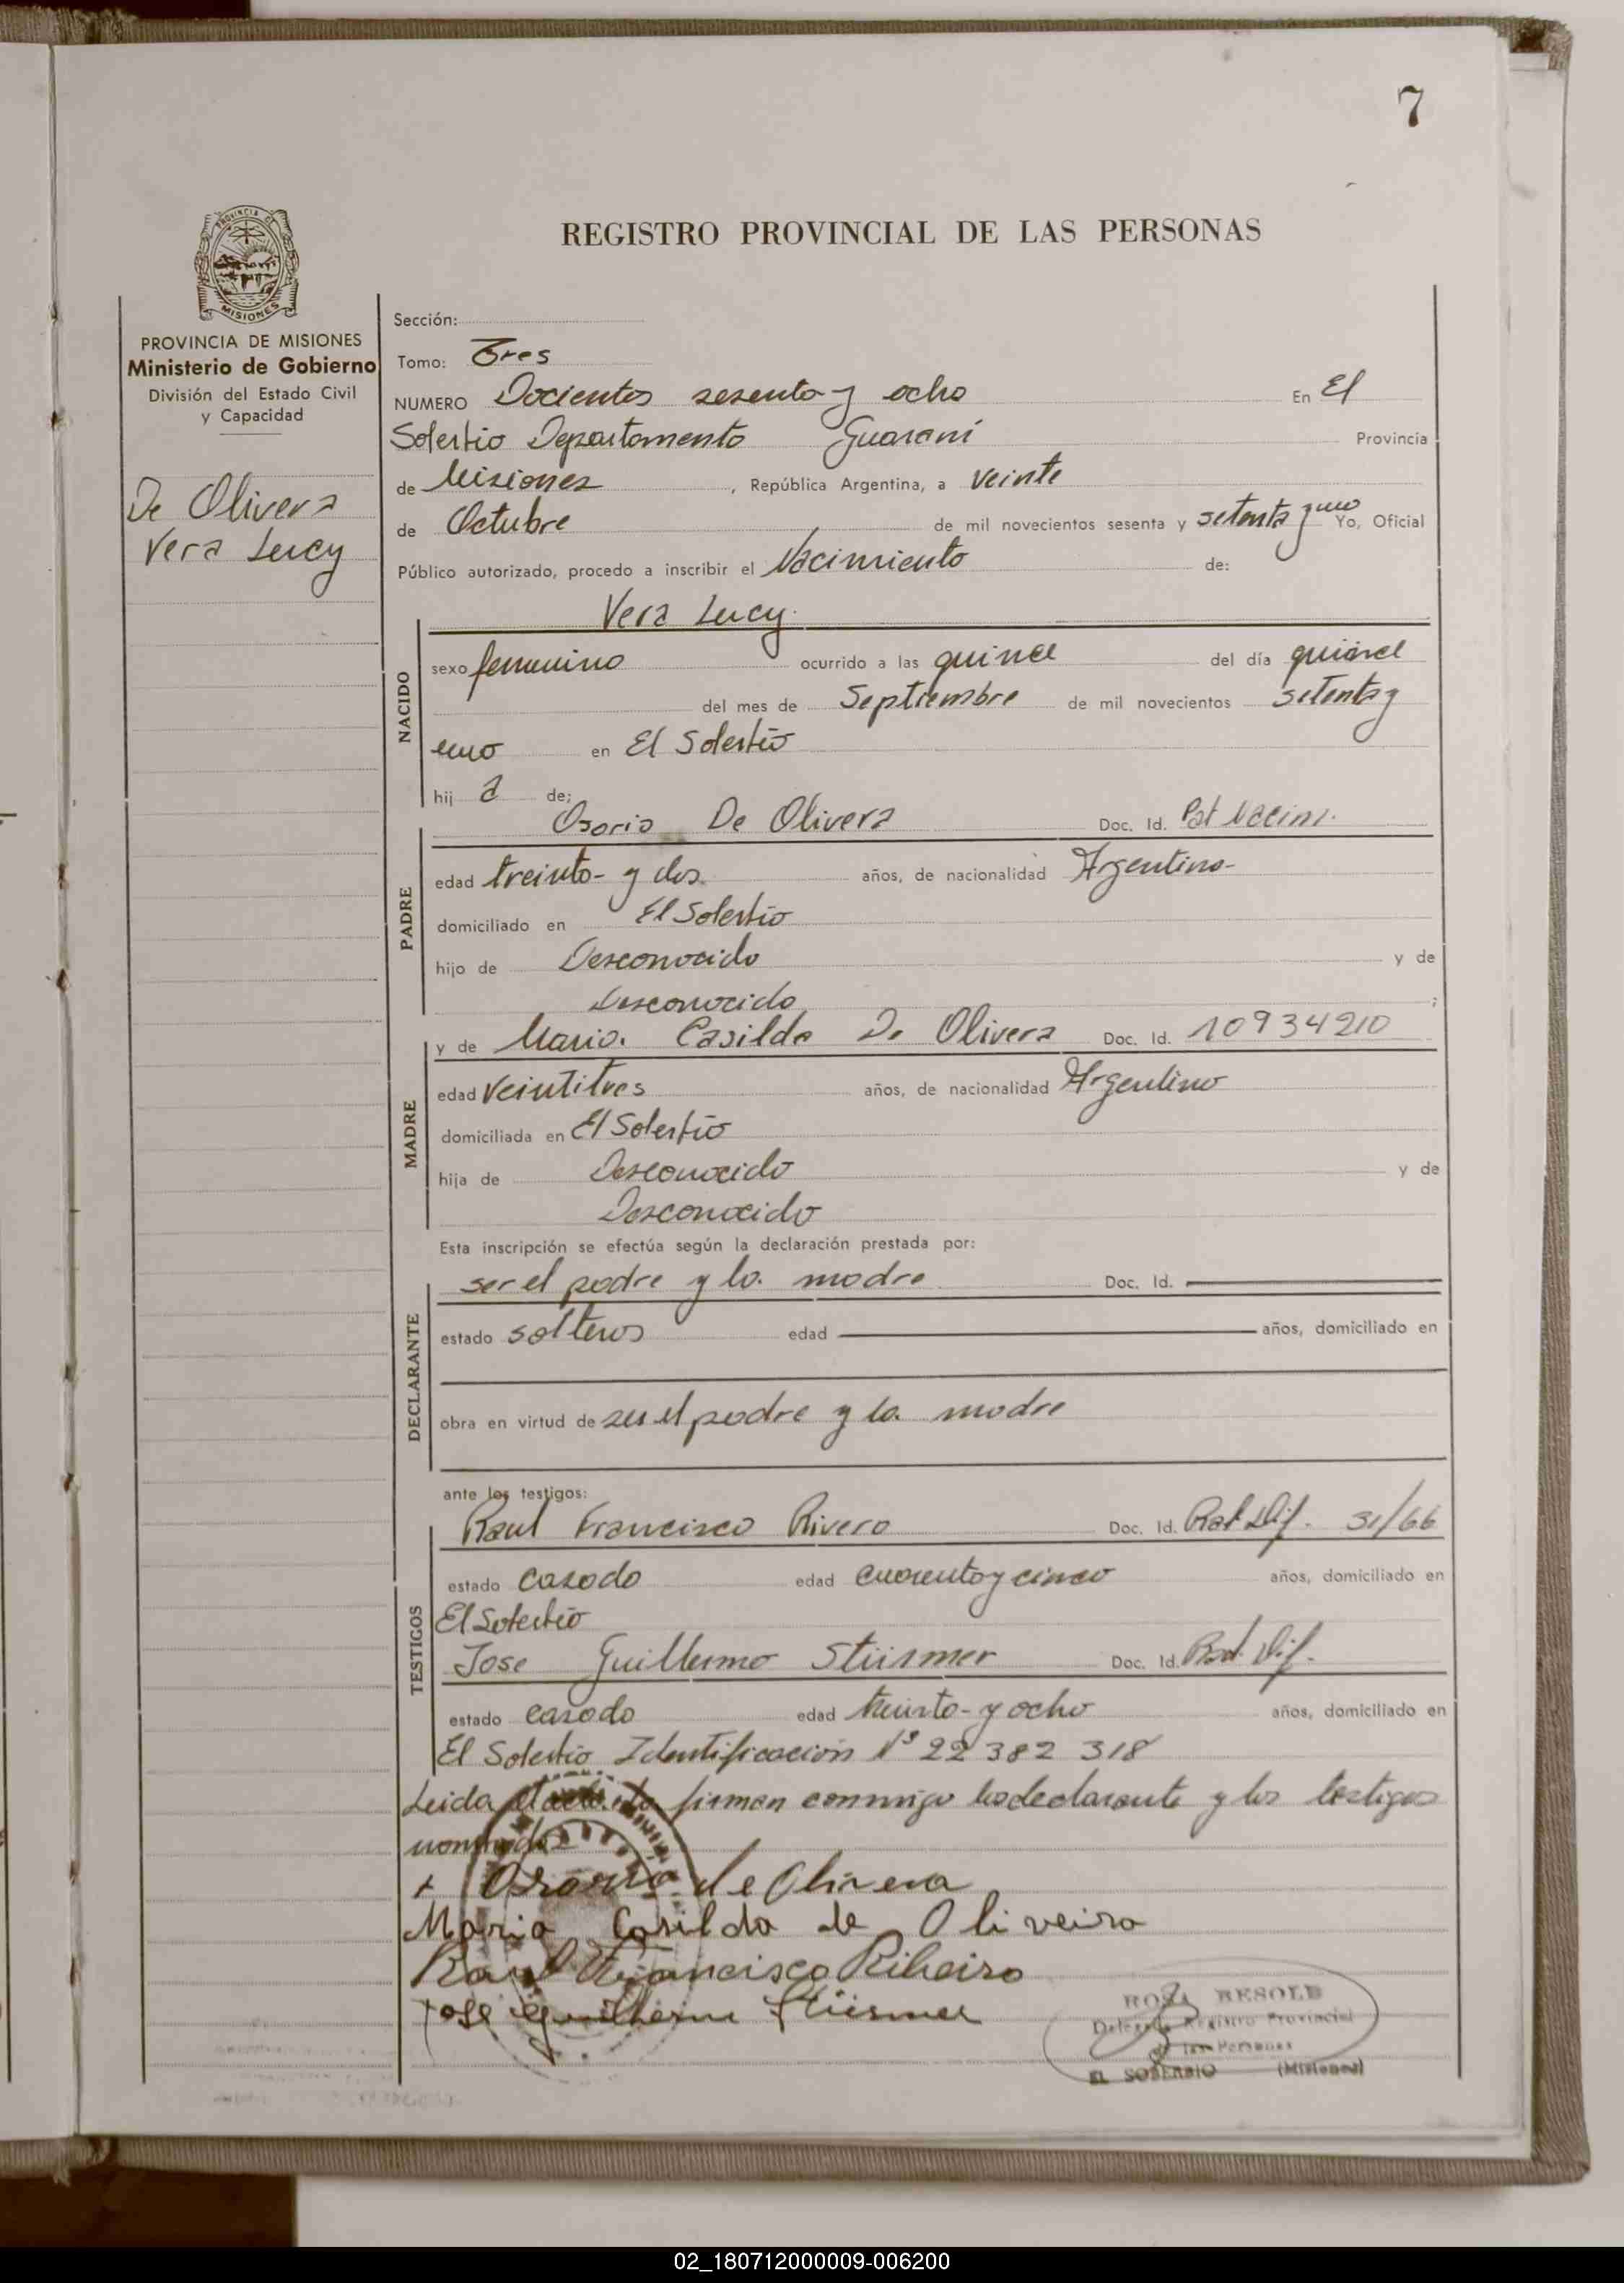 7
REGISTRO PROVINCIAL DE LAS PERSONAS
PROVINCIA DE
MISIONES
PROVINCIA DE MISIONES
Ministerio de Gobierno
División del Estado Civil
y Capacidad
De Olivera
Vera Lucy
Sección:
Tomo: Tres
NUMERO Docientos sesenta y ocho En El
Soberbio Departamento Guaraní Provincia
de Misiones, República Argentina, a veinte
de Octubre de mil novecientos sesenta y setenta y uno Yo, Oficial
Público autorizado, procedo a inscribir el Nacimiento de:
Vera Lucy
NACIDO
sexo femenino ocurrido a las quince del día quince
del mes de Septiembre de mil novecientos setenta y
uno en El Soberbio
hij a de;
PADRE
Osorio De Olivera Doc. Id.
edad treinta y dos años, de nacionalidad Argentina
domiciliado en El Soberbio
hijo de Desconocido y de
Desconocido;
MADRE
y de Maria Casilda De Olivera Doc. Id. 10934210
edad veintitres años, de nacionalidad Argentino
domiciliada en El Soberbio
hija de Desconocido y de
Desconocido
Esta inscripción se efectúa según la declaración prestada por:
DECLARANTE
ser el padre y la madre Doc. Id.
estado solteros edad años, domiciliado en
obra en virtud de ser el padre y la madre
ante los testigos:
TESTIGOS
Raul Francisco Rivero Doc. Id. 31/66
estado casado edad cuarenta y cinco años, domiciliado en
El Soberbio
Jose Guillermo Stürmer Doc. Id.
estado casado edad treinta y ocho años, domiciliado en
El Soberbio Identificación Nº 22 382 318
Leida el acta la firman conmigo los declarante y los testigos
nombrados
Osorio de Olivera
Maria Casilda de Oliveira
Raul Francisco Ribeiro
Jose Guilherme Stürmer
ROSA BESOLD
Delegada Registro Provincial
de las Personas
EL SOBERBIO (Misiones)
02_180712000009-006200